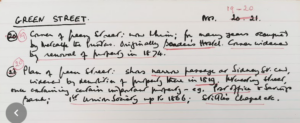 GREEN STREET.
19-20
Nos. 20-21.
20 Corner of Green Street: now Union; for many years occupied
by Metcalfe the printer. Originally Hostel. Corner widened
by removal of property in 1874.
21 Plan of Green Street: shows narrow passage to Sidney St. end,
widened by demolition of property there in 1819. Interesting street,
once containing certain important property - e.g. Post Office & Savings
Bank; 1st Union Society up to 1866; Stittle's chapel etc.